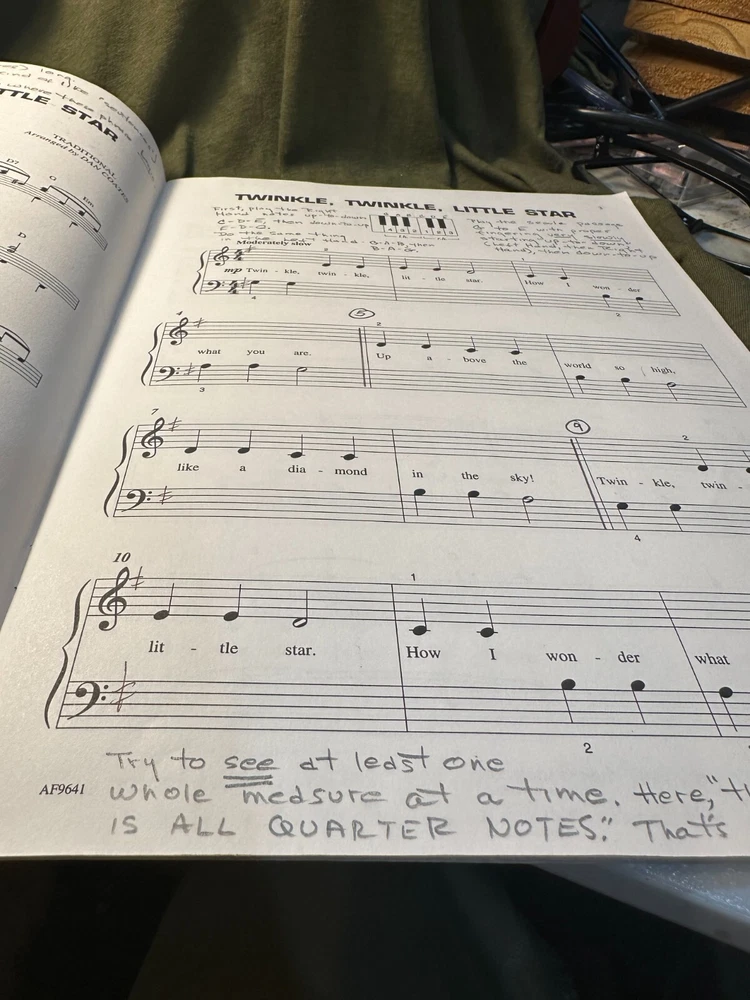 long.
where these phrase
TTLE STAR
TRADITIONAL
Arranged by DAN COATES
D7
G
Em
D
TWINKLE, TWINKLE, LITTLE STAR
First, play the Right
Hand notes up-to-down
C-D-E, then down-to-up
E-D-C.
Do the same thing
in the Left Hand. G-A-B, then
B-A-G.
Play the scale passage
G to E with proper
fingering, very slowly
Moderately slow
2
mp Twin - kle, twin - kle, lit - tle star. How I won - der
4
2
4
5
2
what you are. Up a - bove the world so high,
3
7
9
2
like a dia - mond in the sky! Twin - kle, twin -
4
10
1
lit - tle star. How I won - der what
2
Try to see at least one
AF9641
whole measure at a time. Here, "th
IS ALL QUARTER NOTES." That's